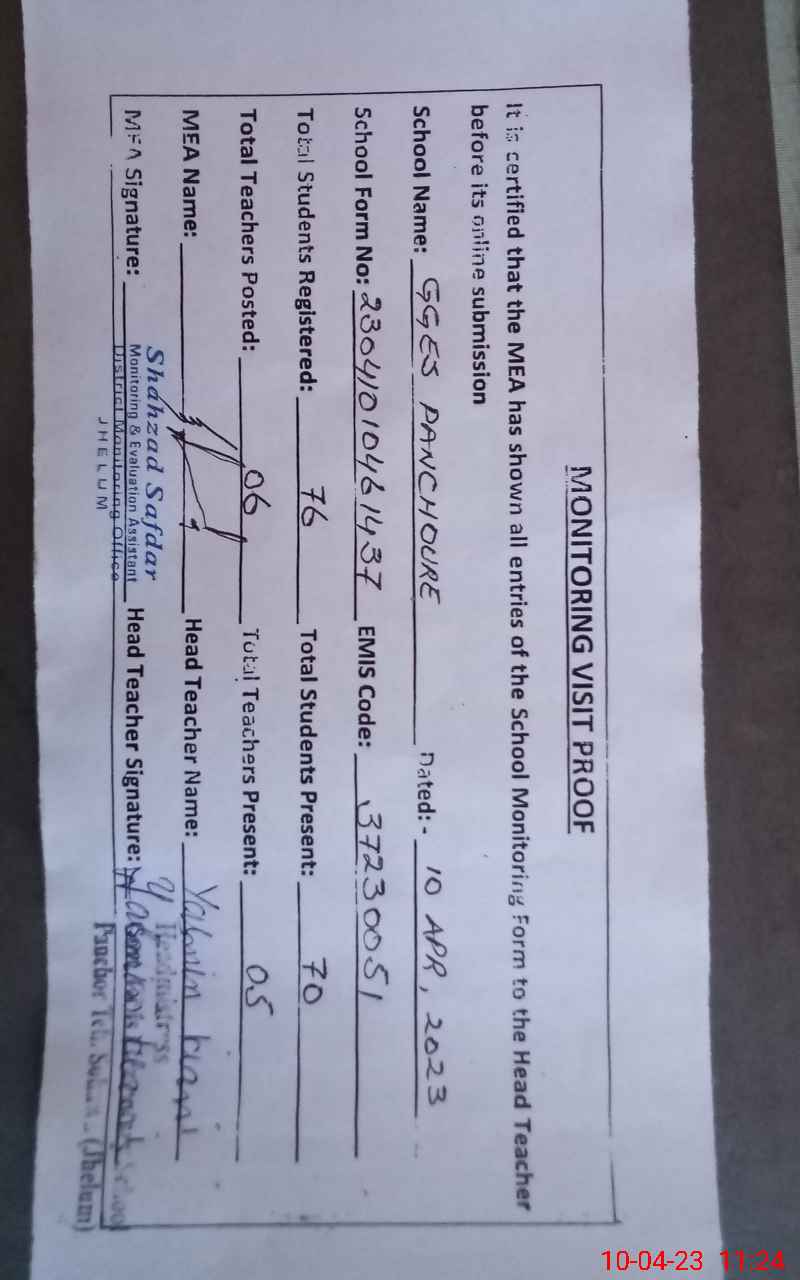 MONITORING VISIT PROOF
It is certified that the MEA has shown all entries of the School Monitoring Form to the Head Teacher
before its online submission
School Name: GGES PANCHOURE Dated:- 10 APR, 2023
School Form No: 23041010461437 EMIS Code: 37230051
Total Students Registered: 76 Total Students Present: 70
Total Teachers Posted: 06 Total Teachers Present: 05
MEA Name: Head Teacher Name: Kiani
MEA Signature: Head Teacher Signature:
Shahzad Safdar
Monitoring & Evaluation Assistant
District Monitoring Office
JHELUM
Headmistress
School
Panchor Teh. (Jhelum)
10-04-23 11:24